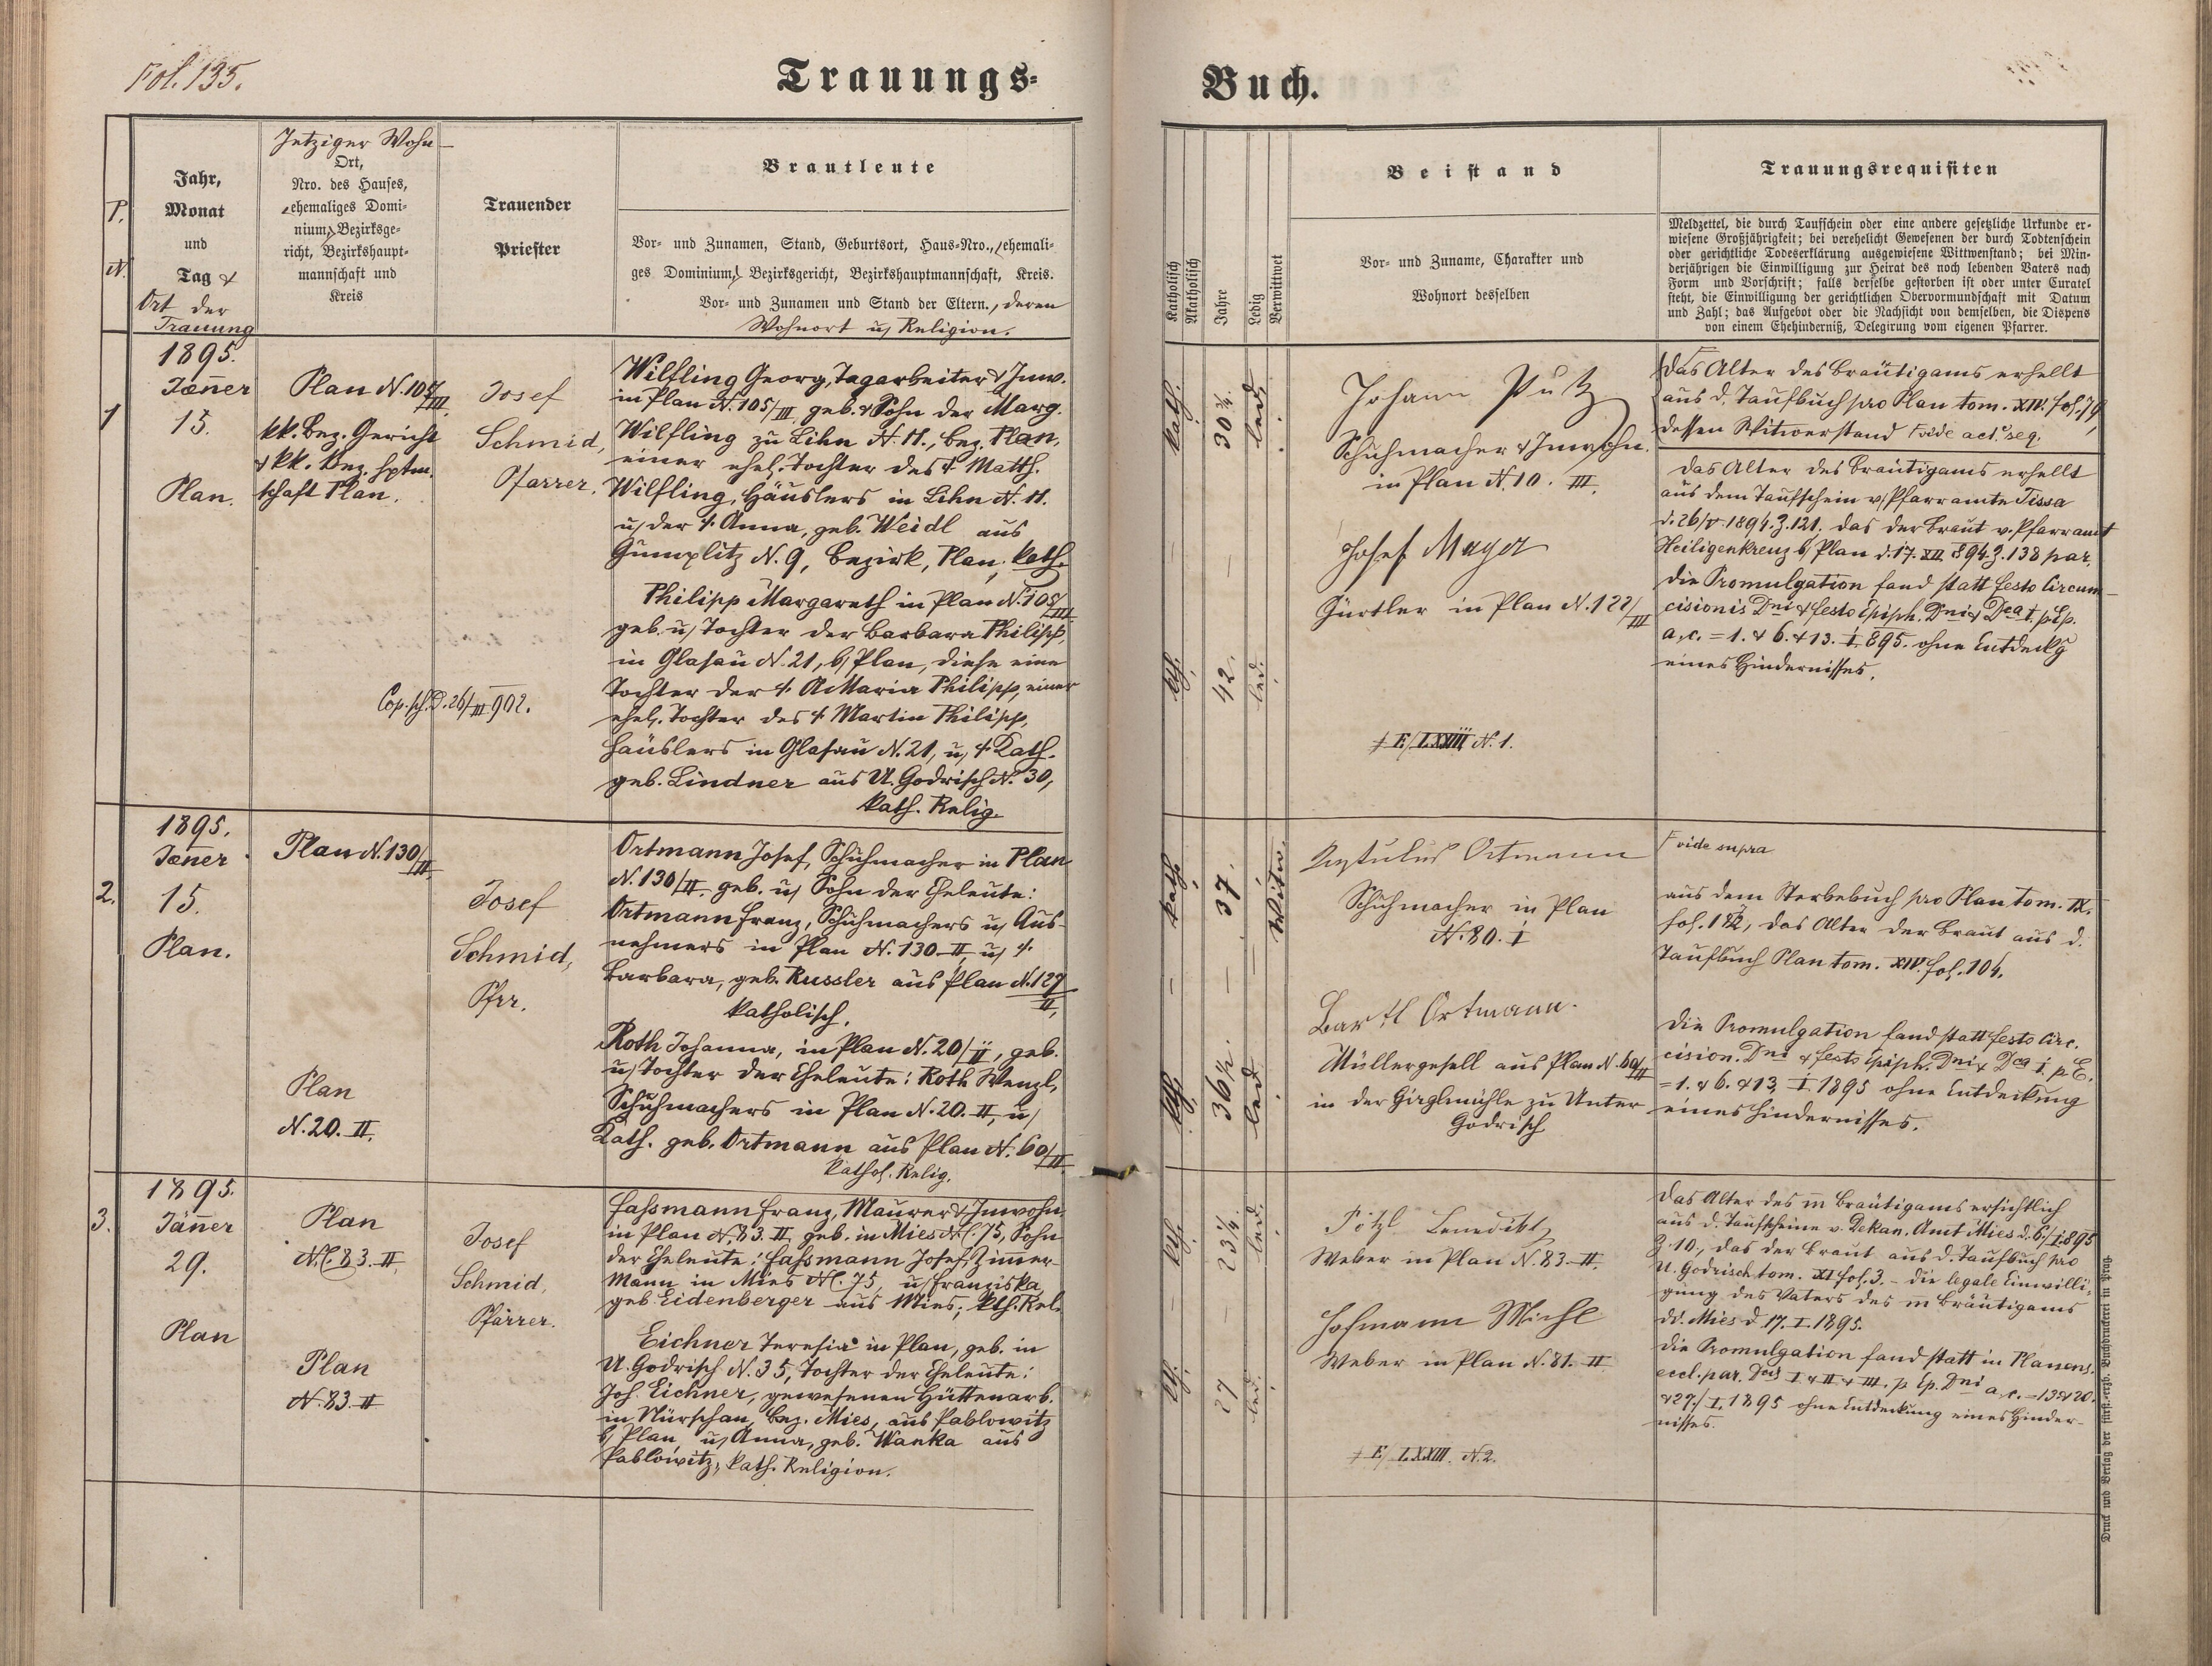 Fol. 135.
Trauungs-
Buch.
P.
N.
Jahr,
Monat
und
Tag &
Ort der
Trauung
Jetziger Wohn-
Ort,
Nro. des Hauses,
ehemaliges Domi-
nium, Bezirksge-
richt, Bezirkshaupt-
mannschaft und
Kreis
Trauender
Priester
Brautleute
Vor- und Zunamen, Stand, Geburtsort, Haus-Nro., ehemali-
ges Dominium, Bezirksgericht, Bezirkshauptmannschaft, Kreis.
Vor- und Zunamen und Stand der Eltern., deren
Wohnort u. Religion.
Katholisch
Akatholisch
Jahre
Ledig
Verwittwet
Beistand
Vor- und Zuname, Charakter und
Wohnort desselben
Trauungsrequisiten
Meldzettel, die durch Taufschein oder eine andere gesetzliche Urkunde er-
wiesene Großjährigkeit; bei verehelicht Gewesenen der durch Todtenschein
oder gerichtliche Todeserklärung ausgewiesene Wittwenstand; bei Min-
derjährigen die Einwilligung zur Heirat des noch lebenden Vaters nach
Form und Vorschrift; falls derselbe gestorben ist oder unter Curatel
steht, die Einwilligung der gerichtlichen Obervormundschaft mit Datum
und Zahl; das Aufgebot oder die Nachsicht von demselben, die Dispens
von einem Ehehinderniß, Delegirung vom eigenen Pfarrer.
1
1895.
Jänner
15.
Plan.
Plan N. 105/III.
kk. Bez. Gericht
& kk. Bez. Hptm.
schaft Plan.
Josef
Schmid,
Pfarrer.
Wilfling Georg, Tagarbeiter & Inw.
in Plan N. 105/III geb. & Sohn der Marg.
Wilfling zu Lihn N. 11., bez. Plan,
einer ehel. Tochter des † Matth.
Wilfling, Häuslers in Lihn N. 11.
u. der † Anna, geb. Weidl aus
Gumplitz N. 9, Bezirk, Plan, kath.
Philipp Margareth in Plan N. 105/III
geb. u. Tochter der Barbara Philipp,
in Glasau N. 21, b. Plan, diese eine
Tochter der † A Maria Philipp, einer
ehel. Tochter des † Martin Philipp,
Häuslers in Glasau N. 21, u. † Kath.
geb. Lindner aus U. Godrisch N. 30,
kath. Relig.
Cop. sch. D. 26/III 902.
kath.
30 3/4.
led.
kth.
42.
led.
Johann Putz
Schuhmacher & Inwohn.
in Plan N. 10. III.
Josef Mayer
Gürtler in Plan N. 122/III
† E/LXXIII N. 1.
das Alter des Bräutigams erhellt
aus d. Taufbuch pro Plan tom. XIV. fol. 79,
dessen Witwerstand vide act. seq.
das Alter des Bräutigams erhellt
aus dem Taufschein v. Pfarramte Tissa
d. 26/V. 1894. Z. 121. das der Braut v. Pfarramt
Heiligenkreuz b/Plan d. 17. XII 894 Z. 138 par.
die Promulgation fand statt festo Circum-
cisionis Dni & festo Epiph. Dni & Dca I. p. Ep.
a. c. = 1. & 6. & 13. I. 895. ohne Entdeckg
eines Hindernisses.
2.
1895.
Jänner
15.
Plan.
Plan N. 130/II.
Plan
N. 20. II.
Josef
Schmid,
Pfrr.
Ortmann Josef, Schuhmacher in Plan
N. 130/II. geb. u. Sohn der Eheleute:
Ortmann Franz, Schuhmachers u. Aus-
nehmers in Plan N. 130 II, u. †
Barbara, geb. Russler aus Plan N. 127
II,
katholisch.
Roth Johanna, in Plan N. 20/II, geb.
u. Tochter der Eheleute: Roth Wenzl,
Schuhmachers in Plan N. 20. II, u.
Kath. geb. Ortmann aus Plan N. 60/II
kathol. Relig.
kath
37.
Witw.
kth.
36 1/2.
led.
Ortmann
Schuhmacher in Plan
N. 80. I
Bartl Ortmann.
Müllergesell aus Plan N. 60/II
in der Girglmühle zu Unter
Godrisch
vide supra
aus dem Sterbebuch pro Plan tom. IX.
fol. , das Alter der Braut aus d.
Taufbuch Plan tom. XIV. fol. 104.
die Promulgation fand statt festo Circ.
cision. Dni & festo Epiph. Dni & Dca I. p. E.
= 1. & 6. & 13. I 1895 ohne Entdeckung
eines Hindernisses.
3.
1895.
Jänner
29.
Plan
Plan
N.C. 83. II.
Plan
N. 83. II
Josef
Schmid,
Pfarrer.
Fassmann Franz, Maurer & Inwohn.
in Plan N. 83. II, geb. in Mies NC. 75, Sohn
der Eheleute: Fassmann Josef, Zimmer-
mann in Mies NC. 75, u. Franziska
geb. Eidenberger aus Mies; kth. Rel.
Eichner Teresia in Plan, geb. in
U. Godrisch N. 35, Tochter der Eheleute:
Joh. Eichner, gewesenen Hüttenarb.
in Nürschan, Bez. Mies, aus Pablowitz
b/Plan, u. Anna, geb. Wanka aus
Pablowitz, kath. Religion.
kth.
23 1/4.
led.
kth.
27
led.
Pötzl Benedikt
Weber in Plan N. 83. II.
Hofmann Michl
Weber in Plan N. 81. II
† E/LXXIII. N. 2.
das Alter des m Bräutigams ersichtlich
aus d. Taufscheine v. Dekan. Amt Mies d. 6/I. 895
Z. 10., das der Braut aus d. Taufbuch pro
U. Godrisch tom. XI fol. 3. - die legale Einwilli-
gung des Vaters des m Bräutigams
dd. Mies d. 17. I. 1895.
die Promulgation fand statt in Planens.
eccl. par. Dcis I & II & III. p. Ep. Dni a. c. = 13 & 20.
& 27./I. 1895 ohne Entdeckung eines Hinder-
nisses.
Druck und Verlag der fürst.-erzb. Buchdruckerei in Prag.